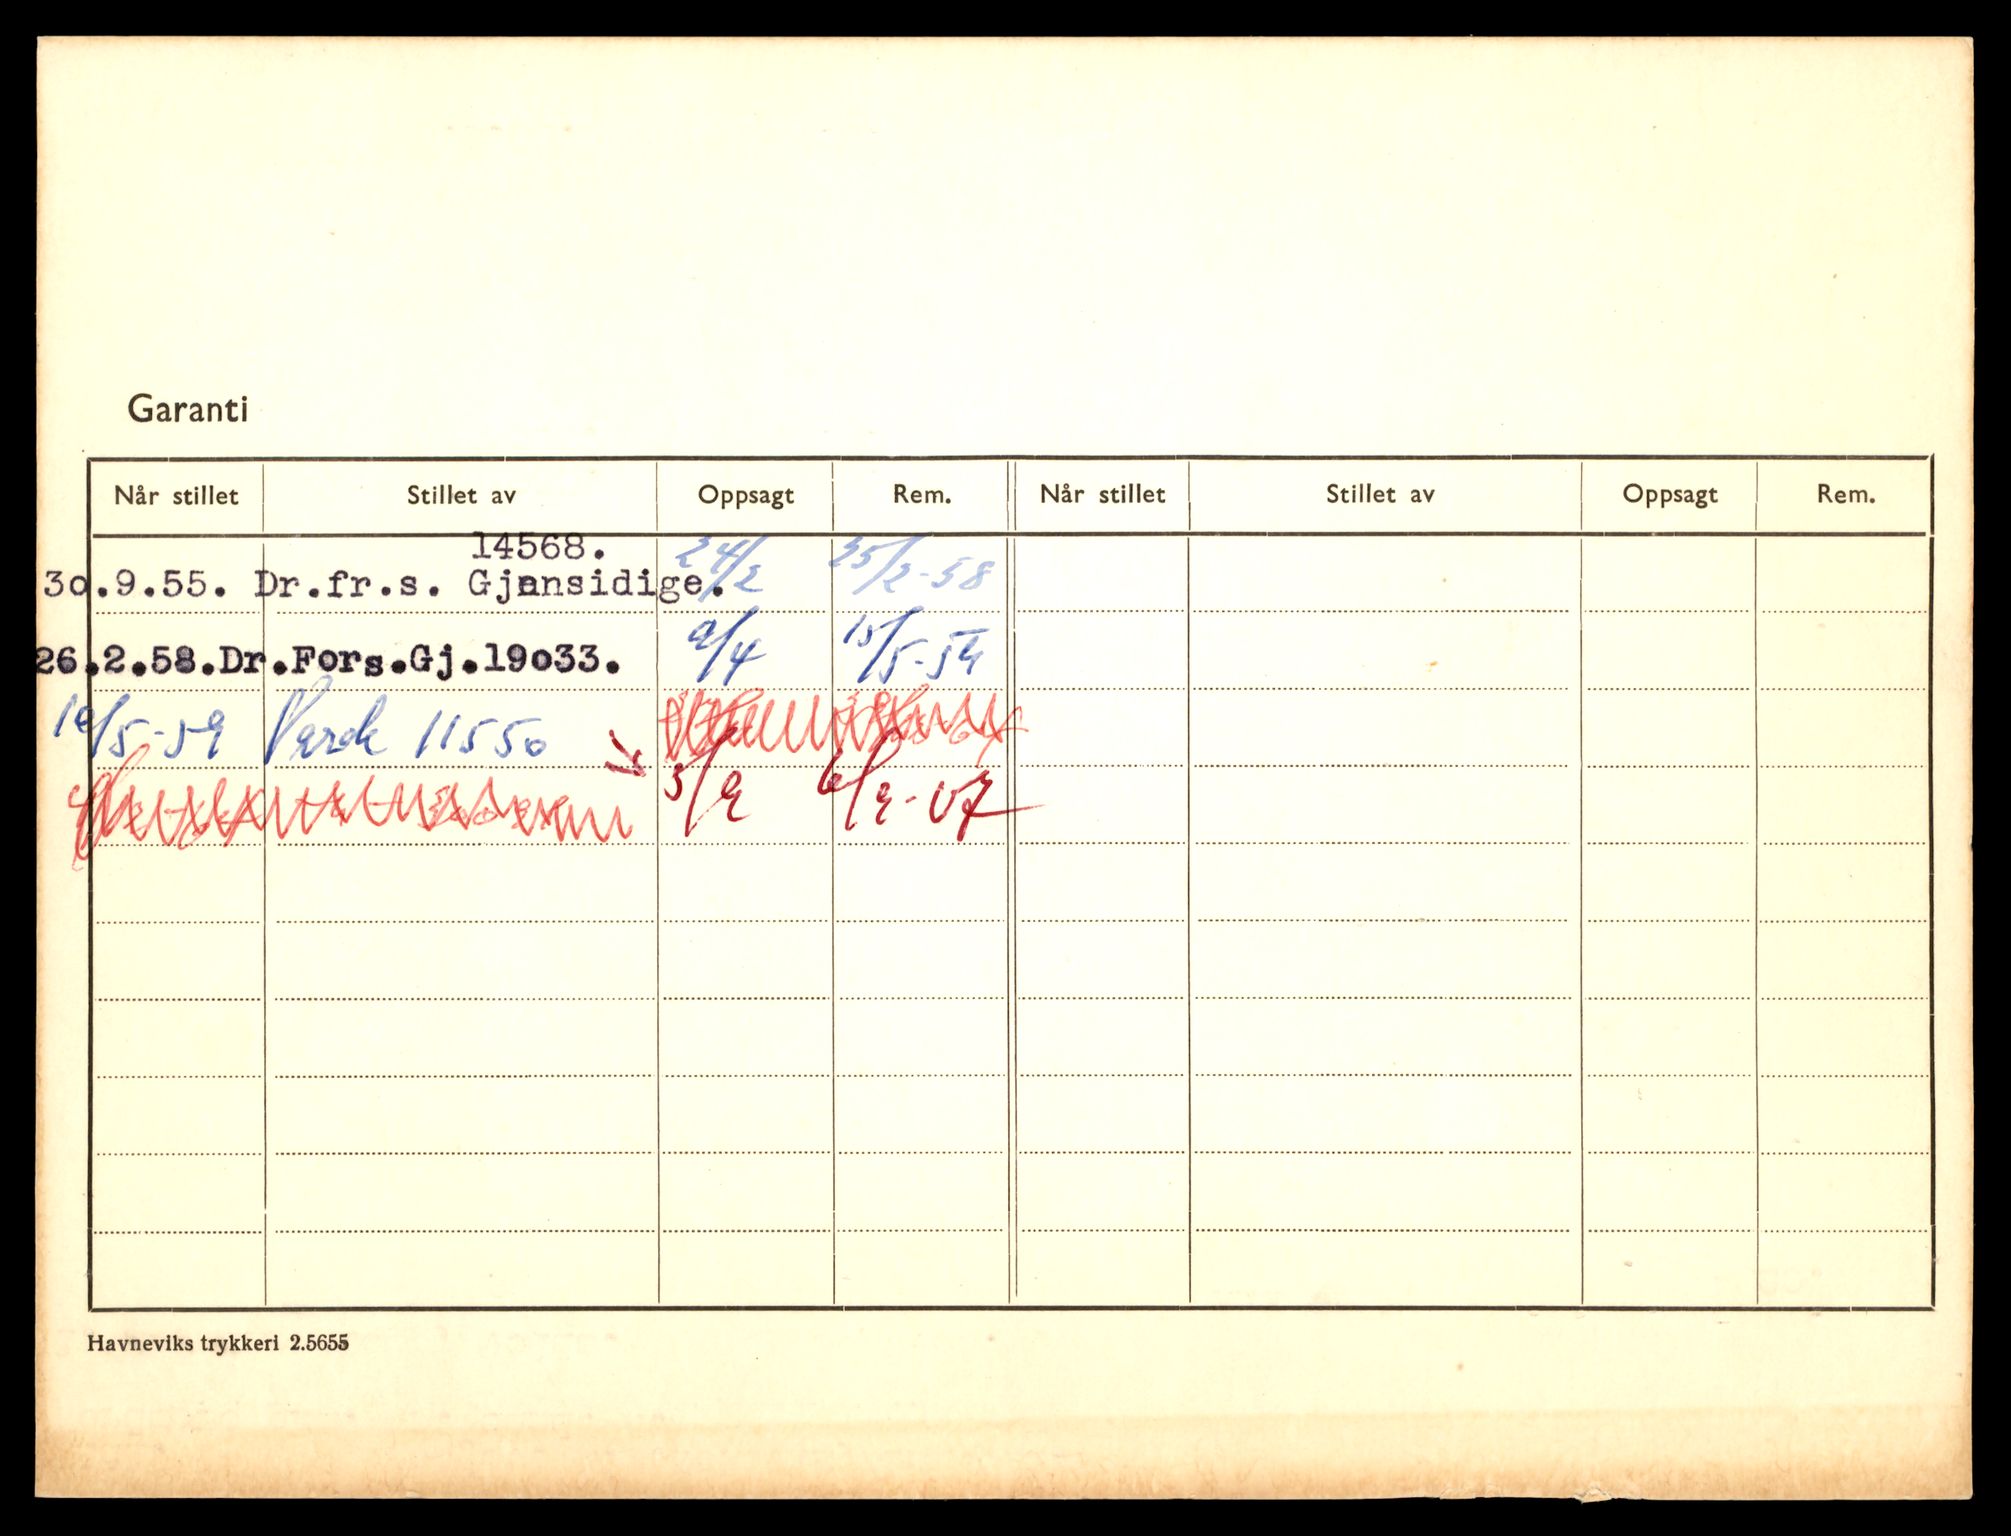 Garanti
Når stillet Stillet av Oppsagt Rem. Når stillet Stillet av Oppsagt Rem.
14568.
30.9.55. Dr.fr.s. Gjensidige. 24/2 25/2-58
26.2.58.Dr.Fors.Gj.19033. 9/4 15/5-59
19/5-59 Varde 11550
5/9 6/9-67
Havneviks trykkeri 2.5655